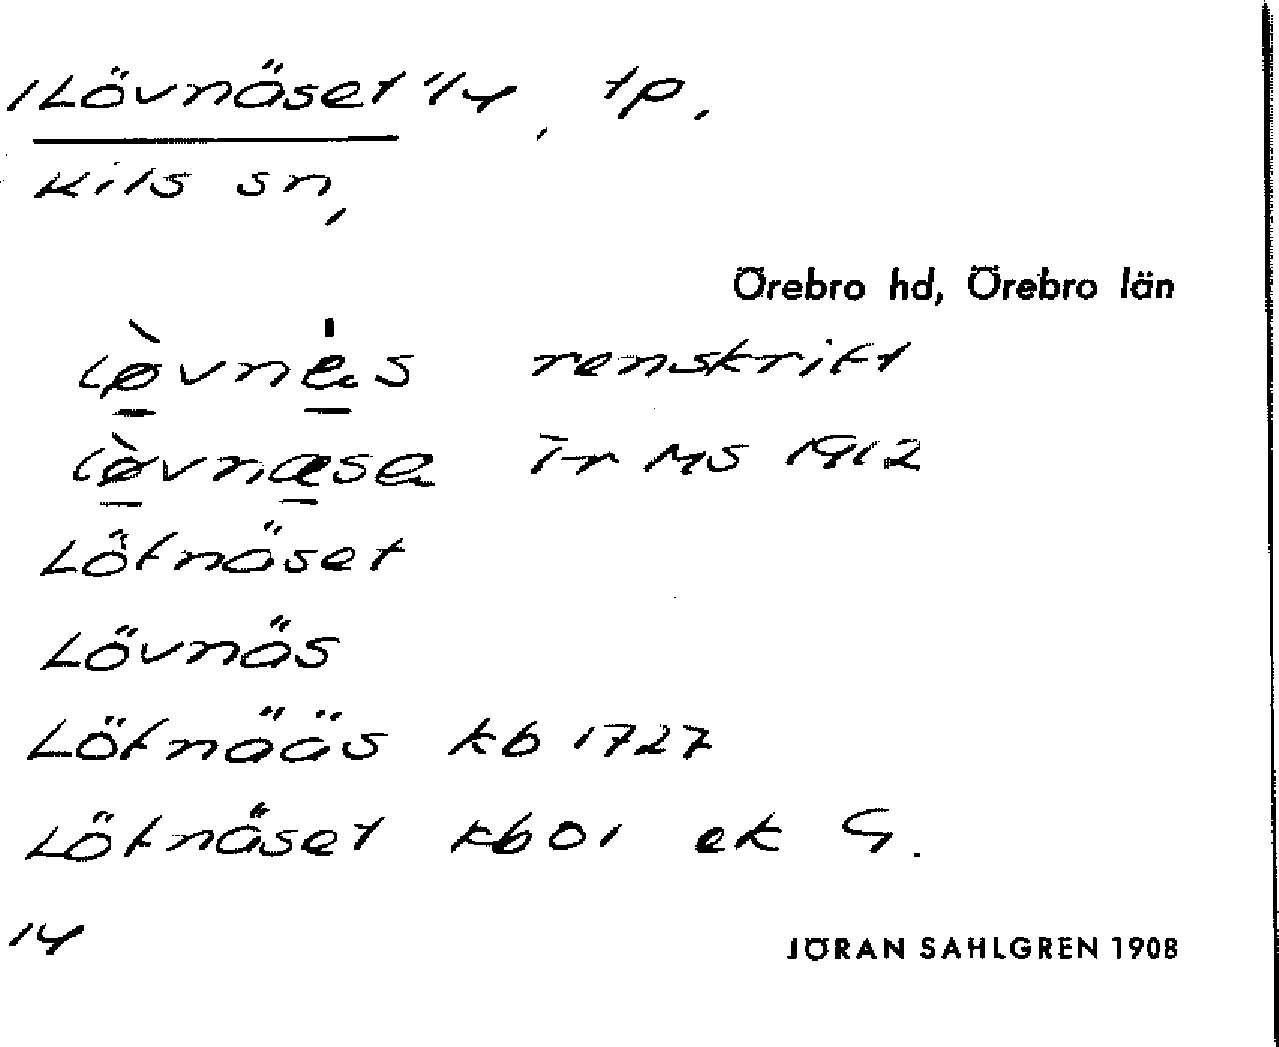 1 Lövnäset 1/4, tp.
Kils sn,
Örebro hd, Örebro län
lø̀vnés renskrift
lø̀vnæsa Ir MS 1912
Löfnäset
Lövnäs
Löfnääs kb 1727
Löfnäset kb 01 ek G.
14
JÖRAN SAHLGREN 1908